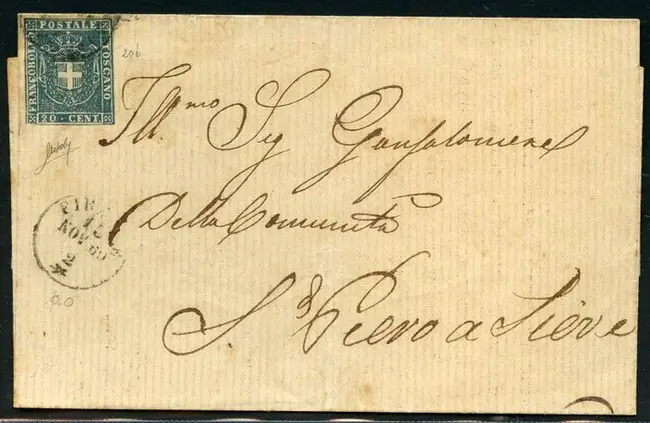 POSTALE
FRANCOBOLLO
TOSCANO
20 CENT
20b
Ill.mo Sig Gonfaloniere
Della Comunità
S. Piero a Sieve
FIR
NOV 60
2
20